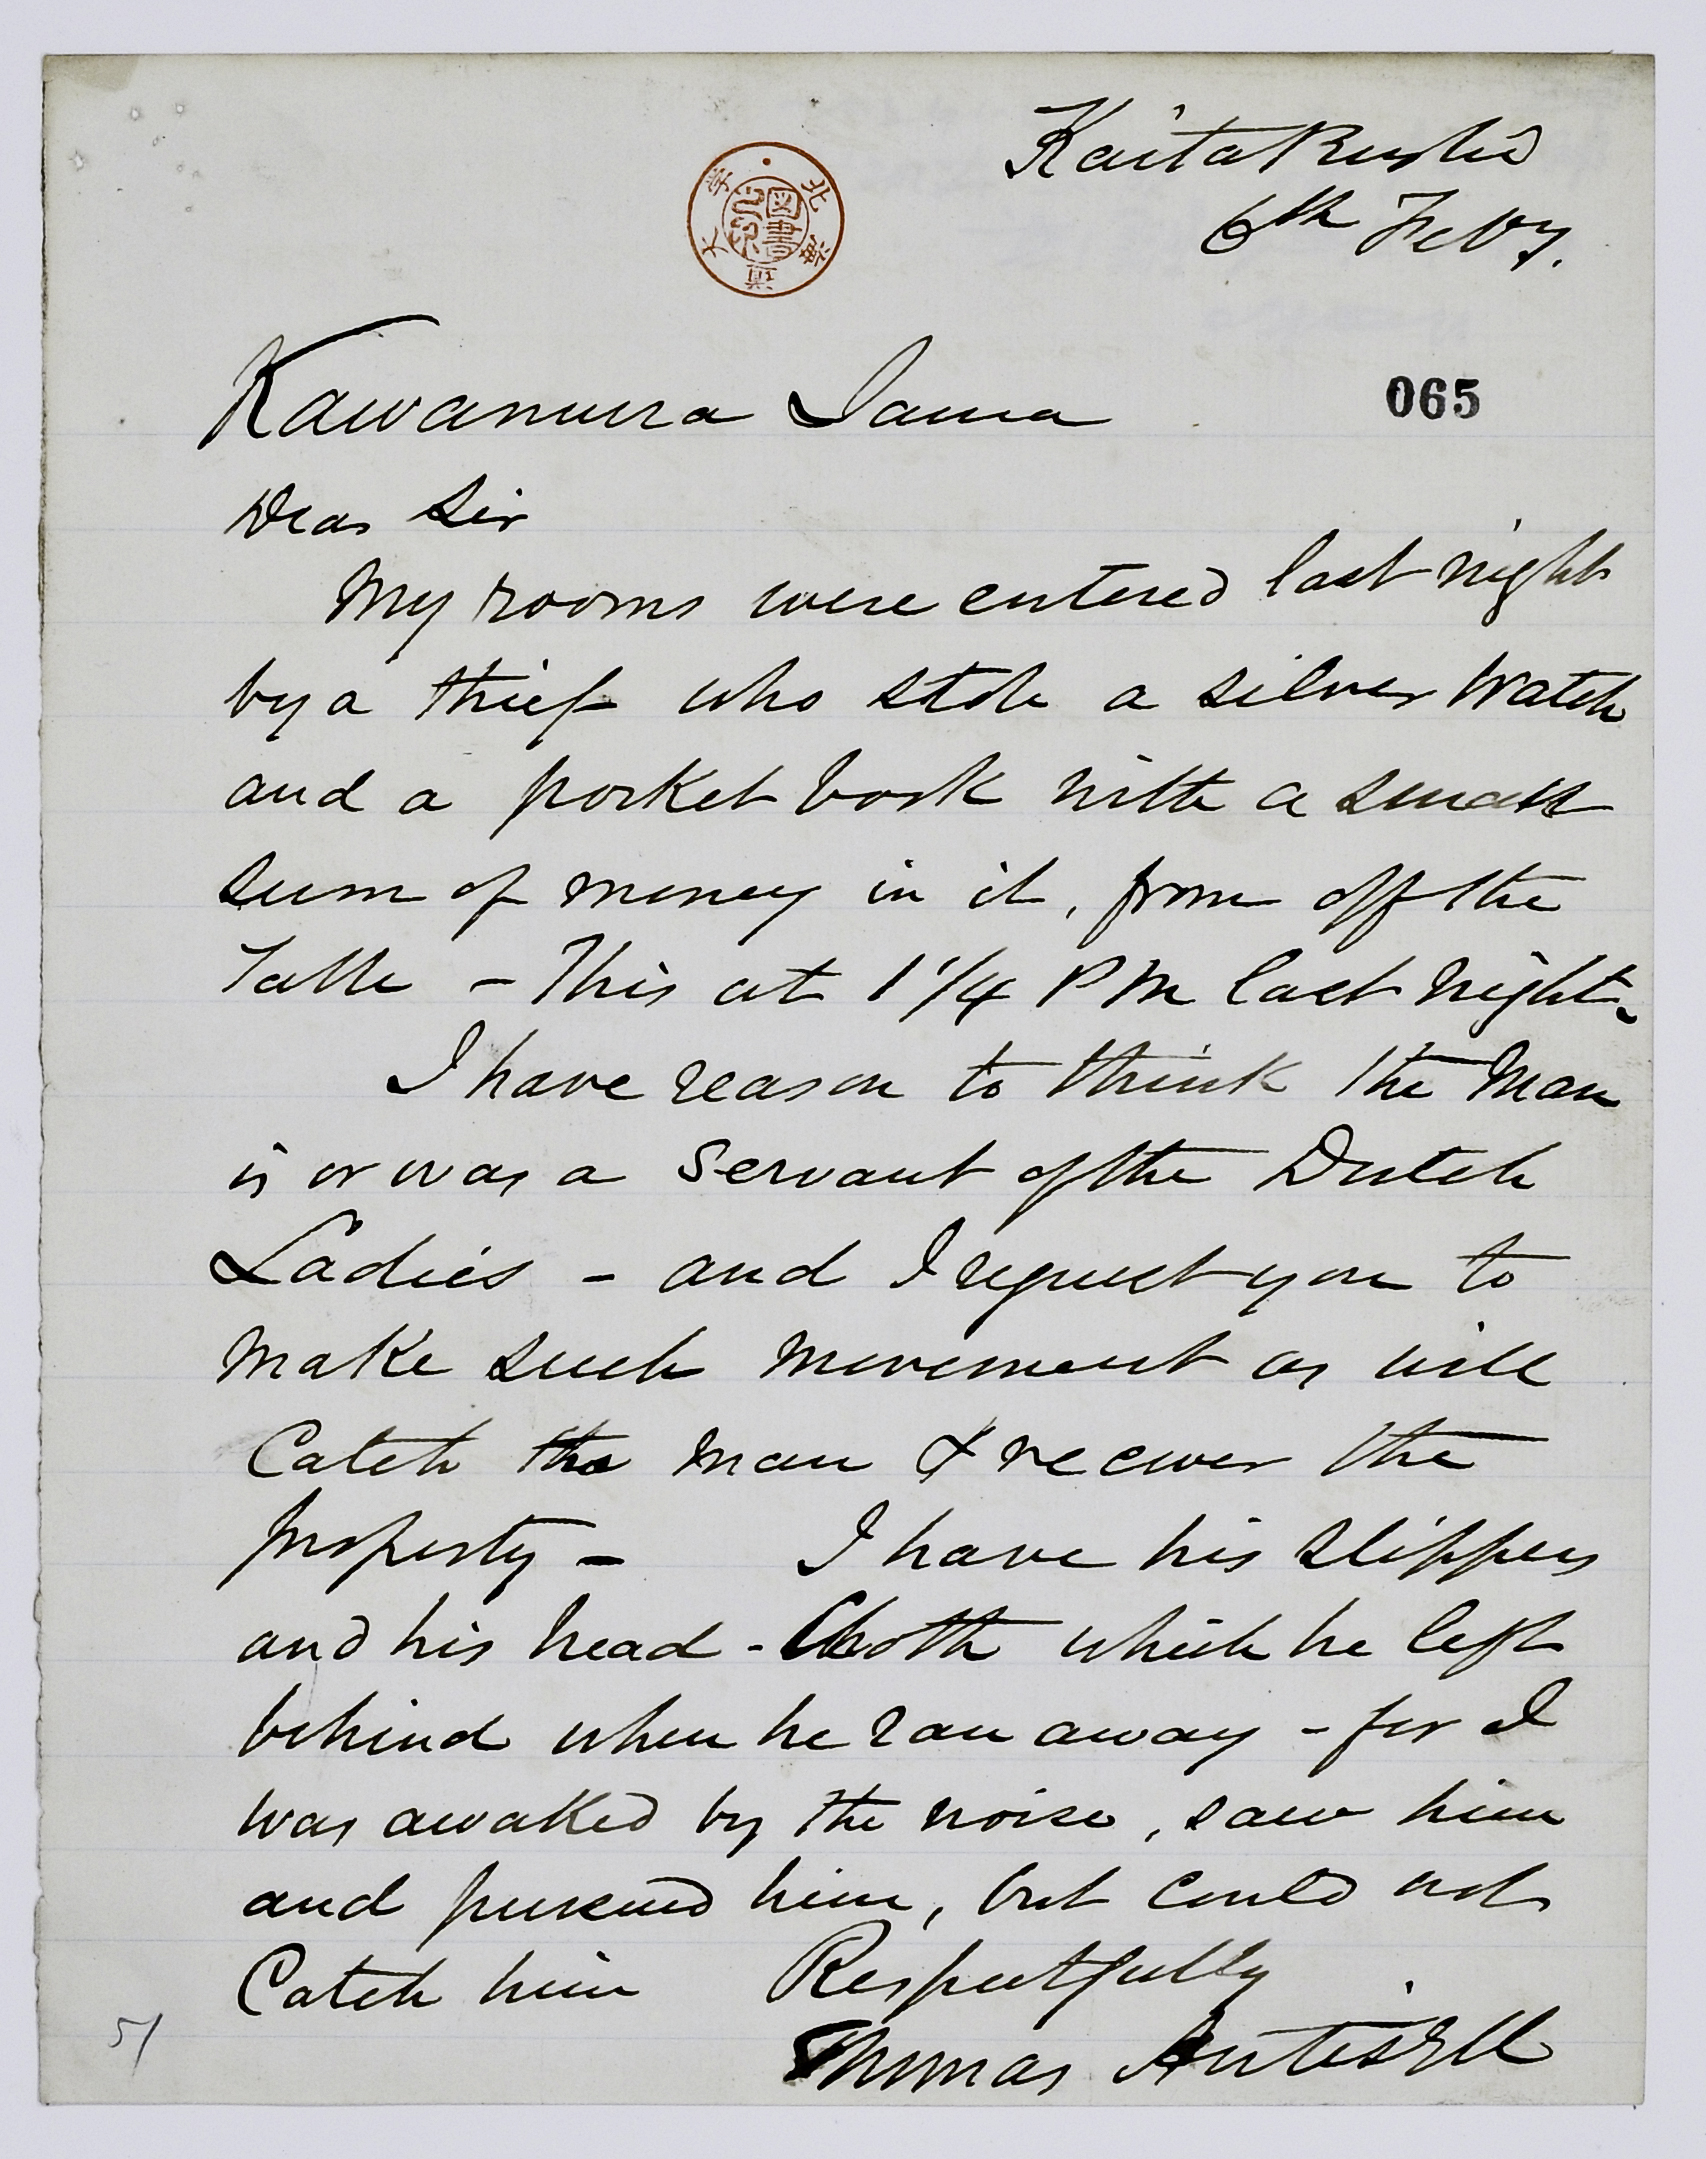 KaitaKushi
6th Feby.
北海道大学
図書之印
065
Kawamura Sama
Dear Sir
My rooms were entered last night
by a thief who stole a silver Watch
and a pocket book with a small
sum of money in it, from off the
Table - This at 1 1/4 PM last night.
I have reason to think the man
is or was a servant of the Dutch
Ladies - and I request you to
make such movement as will
Catch the man & recover the
property - I have his slippers
and his head - Cloth which he left
behind when he ran away - for I
was awaked by the noise, saw him
and pursued him, but could not
Catch him Respectfully
Thomas Antisell
51